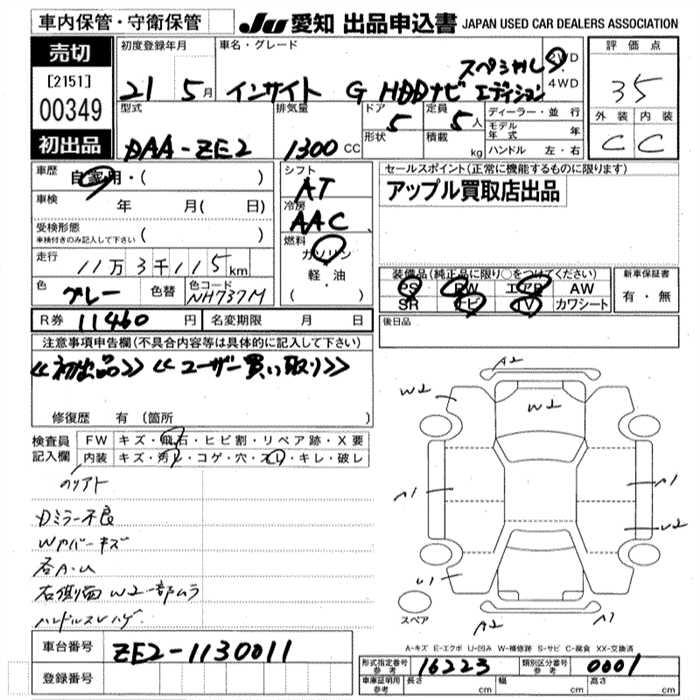 車内保管・守衛保管
JU 愛知 出品申込書 JAPAN USED CAR DEALERS ASSOCIATION
売切
[2151]
00349
初出品
初度登録年月
21 5月
車名・グレード
インサイト G HDDナビ スペシャル
エディション
2WD
4WD
評価点
35
外装 内装
C C
型式
DAA-ZE2
排気量
1300CC
ドア
5
形状
定員
5人
積載 kg
ディーラー・並行
モデル年式 年
ハンドル 左・右
車歴
自家用・( )
車検
年 月( 日)
受検形態
※検付きのみ記入して下さい ( )
走行
11万3千115km
色
グレー
色替
色コード
NH737M
シフト
AT
冷房
AAC
燃料
ガソリン
軽・油
( ・ )
セールスポイント(正常に機能するものに限ります)
アップル買取店出品
装備品(純正品に限り○をつけてください)
PS PW エアB AW
SR ナビ TV カワシート
新車保証書
有・無
後日品
R券 11460円
名変期限 月 日
注意事項申告欄(不具合内容等は具体的に記入して下さい)
≪初出品≫ ≪ユーザー買い取り≫
修復歴 有(箇所 )
検査員
記入欄
FW キズ・飛石・ヒビ割・リペア跡・X要
内装 キズ・汚レ・コゲ・穴・スレ・キレ・破レ
Dミラー不良
各A・U
右側面W2一部ムラ
A2
W2
W2
A1
A1
W2
U1
A2
A1
スペア
A-キズ E-エクボ U-凹み W-補修跡 S-サビ C-腐食 XX-交換済
車台番号
ZE2-1130011
登録番号
形式指定番号
参考
16223
類別区分番号
参考
0001
車庫証明用
参考
長さ cm
幅 cm
高さ cm